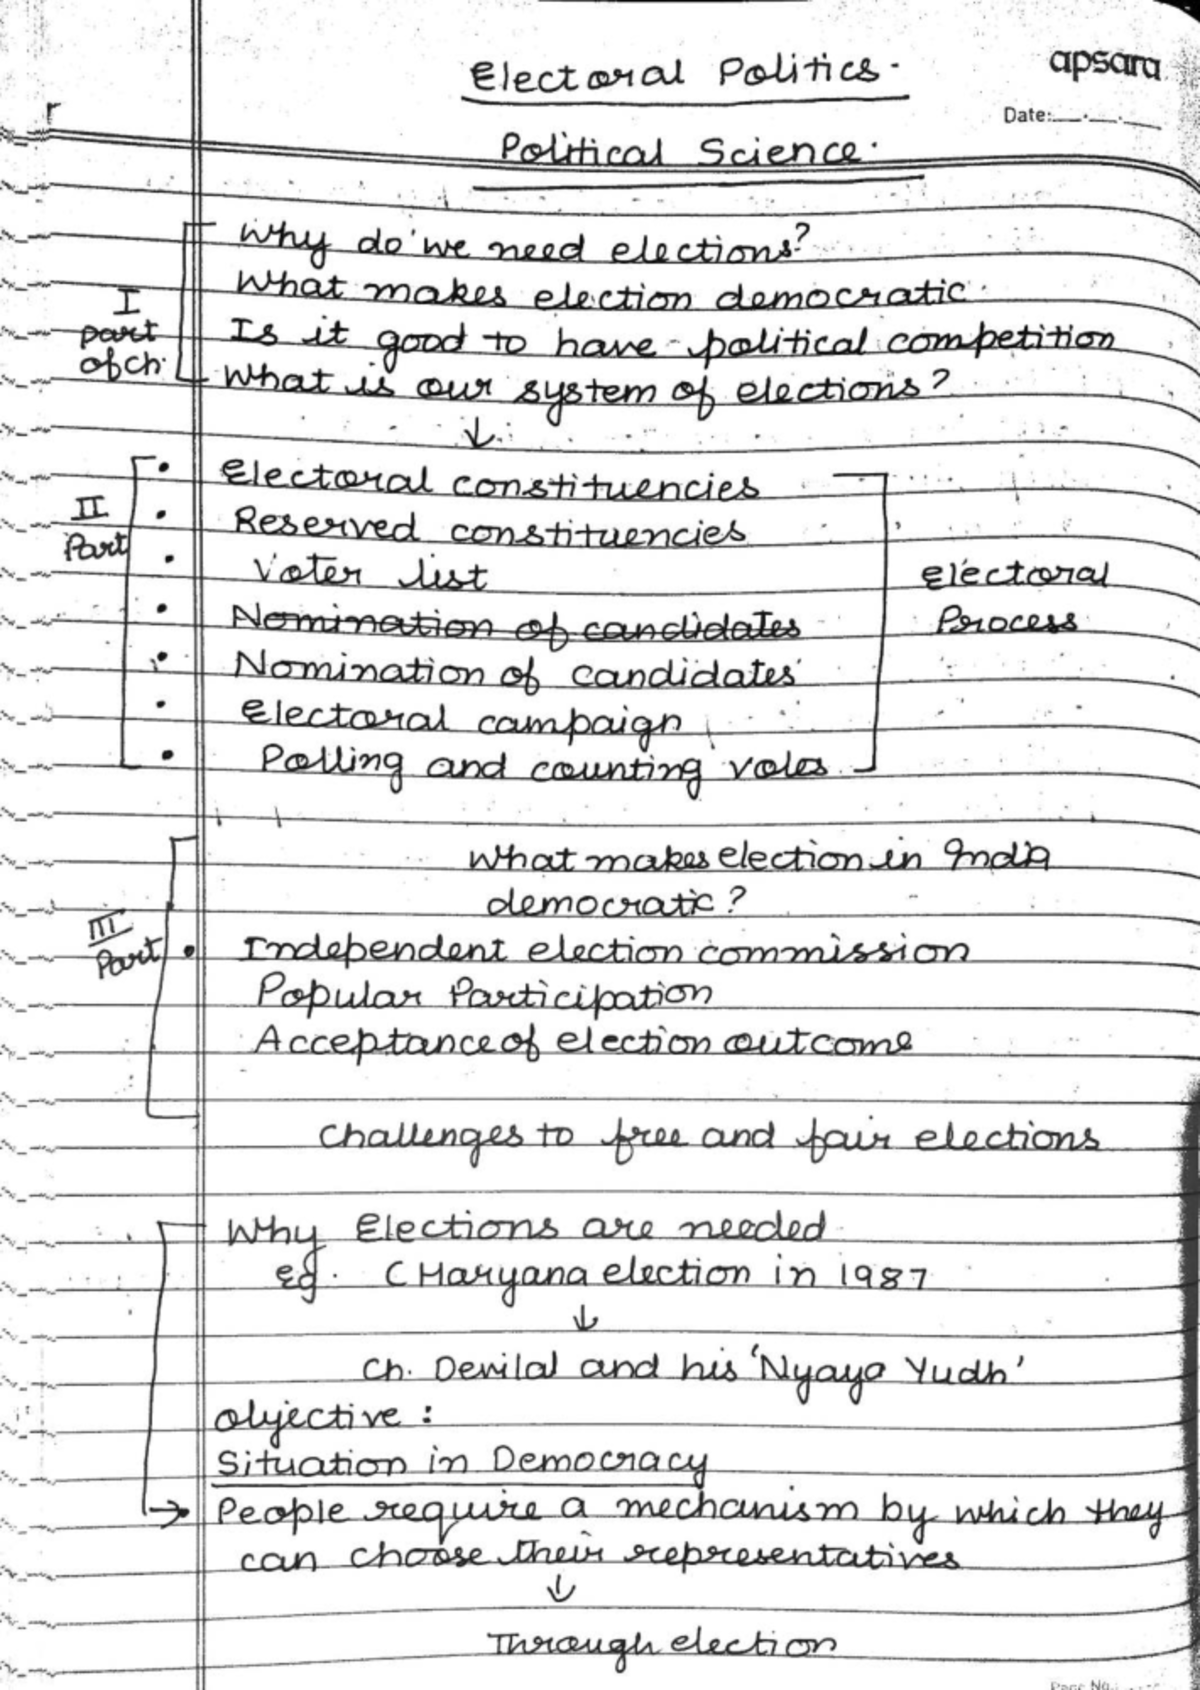 Electoral Politics.
apsara
Date:
Political Science.
Why do we need elections?
What makes election democratic.
I
part
of ch.
Is it good to have political competition
What is our system of elections?
↓
II
Part
• Electoral constituencies
• Reserved constituencies
• Voter list
• Nomination of candidates
• Nomination of candidates
• Electoral campaign
• Polling and counting votes
Electoral
Process
What makes election in India
democratic?
III
Part
• Independent election commission
Popular Participation
Acceptance of election outcome
Challenges to free and fair elections
Why Elections are needed
eg. (Haryana election in 1987
↓
Ch. Devilal and his 'Nyaya Yudh'
objective:
Situation in Democracy
→ People require a mechanism by which they
can choose their representatives
↓
Through election
Page No.: